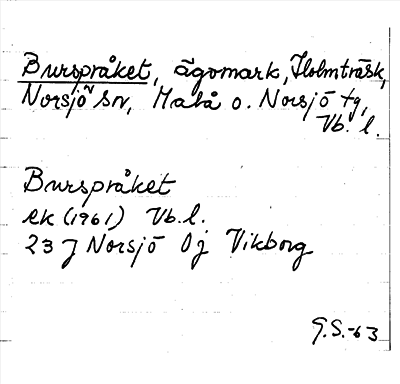 Burspråket, ägomark, Holmträsk,
Norsjö sn, Malå o. Norsjö tg,
Vb. l.
Burspråket
ek (1961) Vb. l.
23 J Norsjö Oj Vikborg
G.S.-63